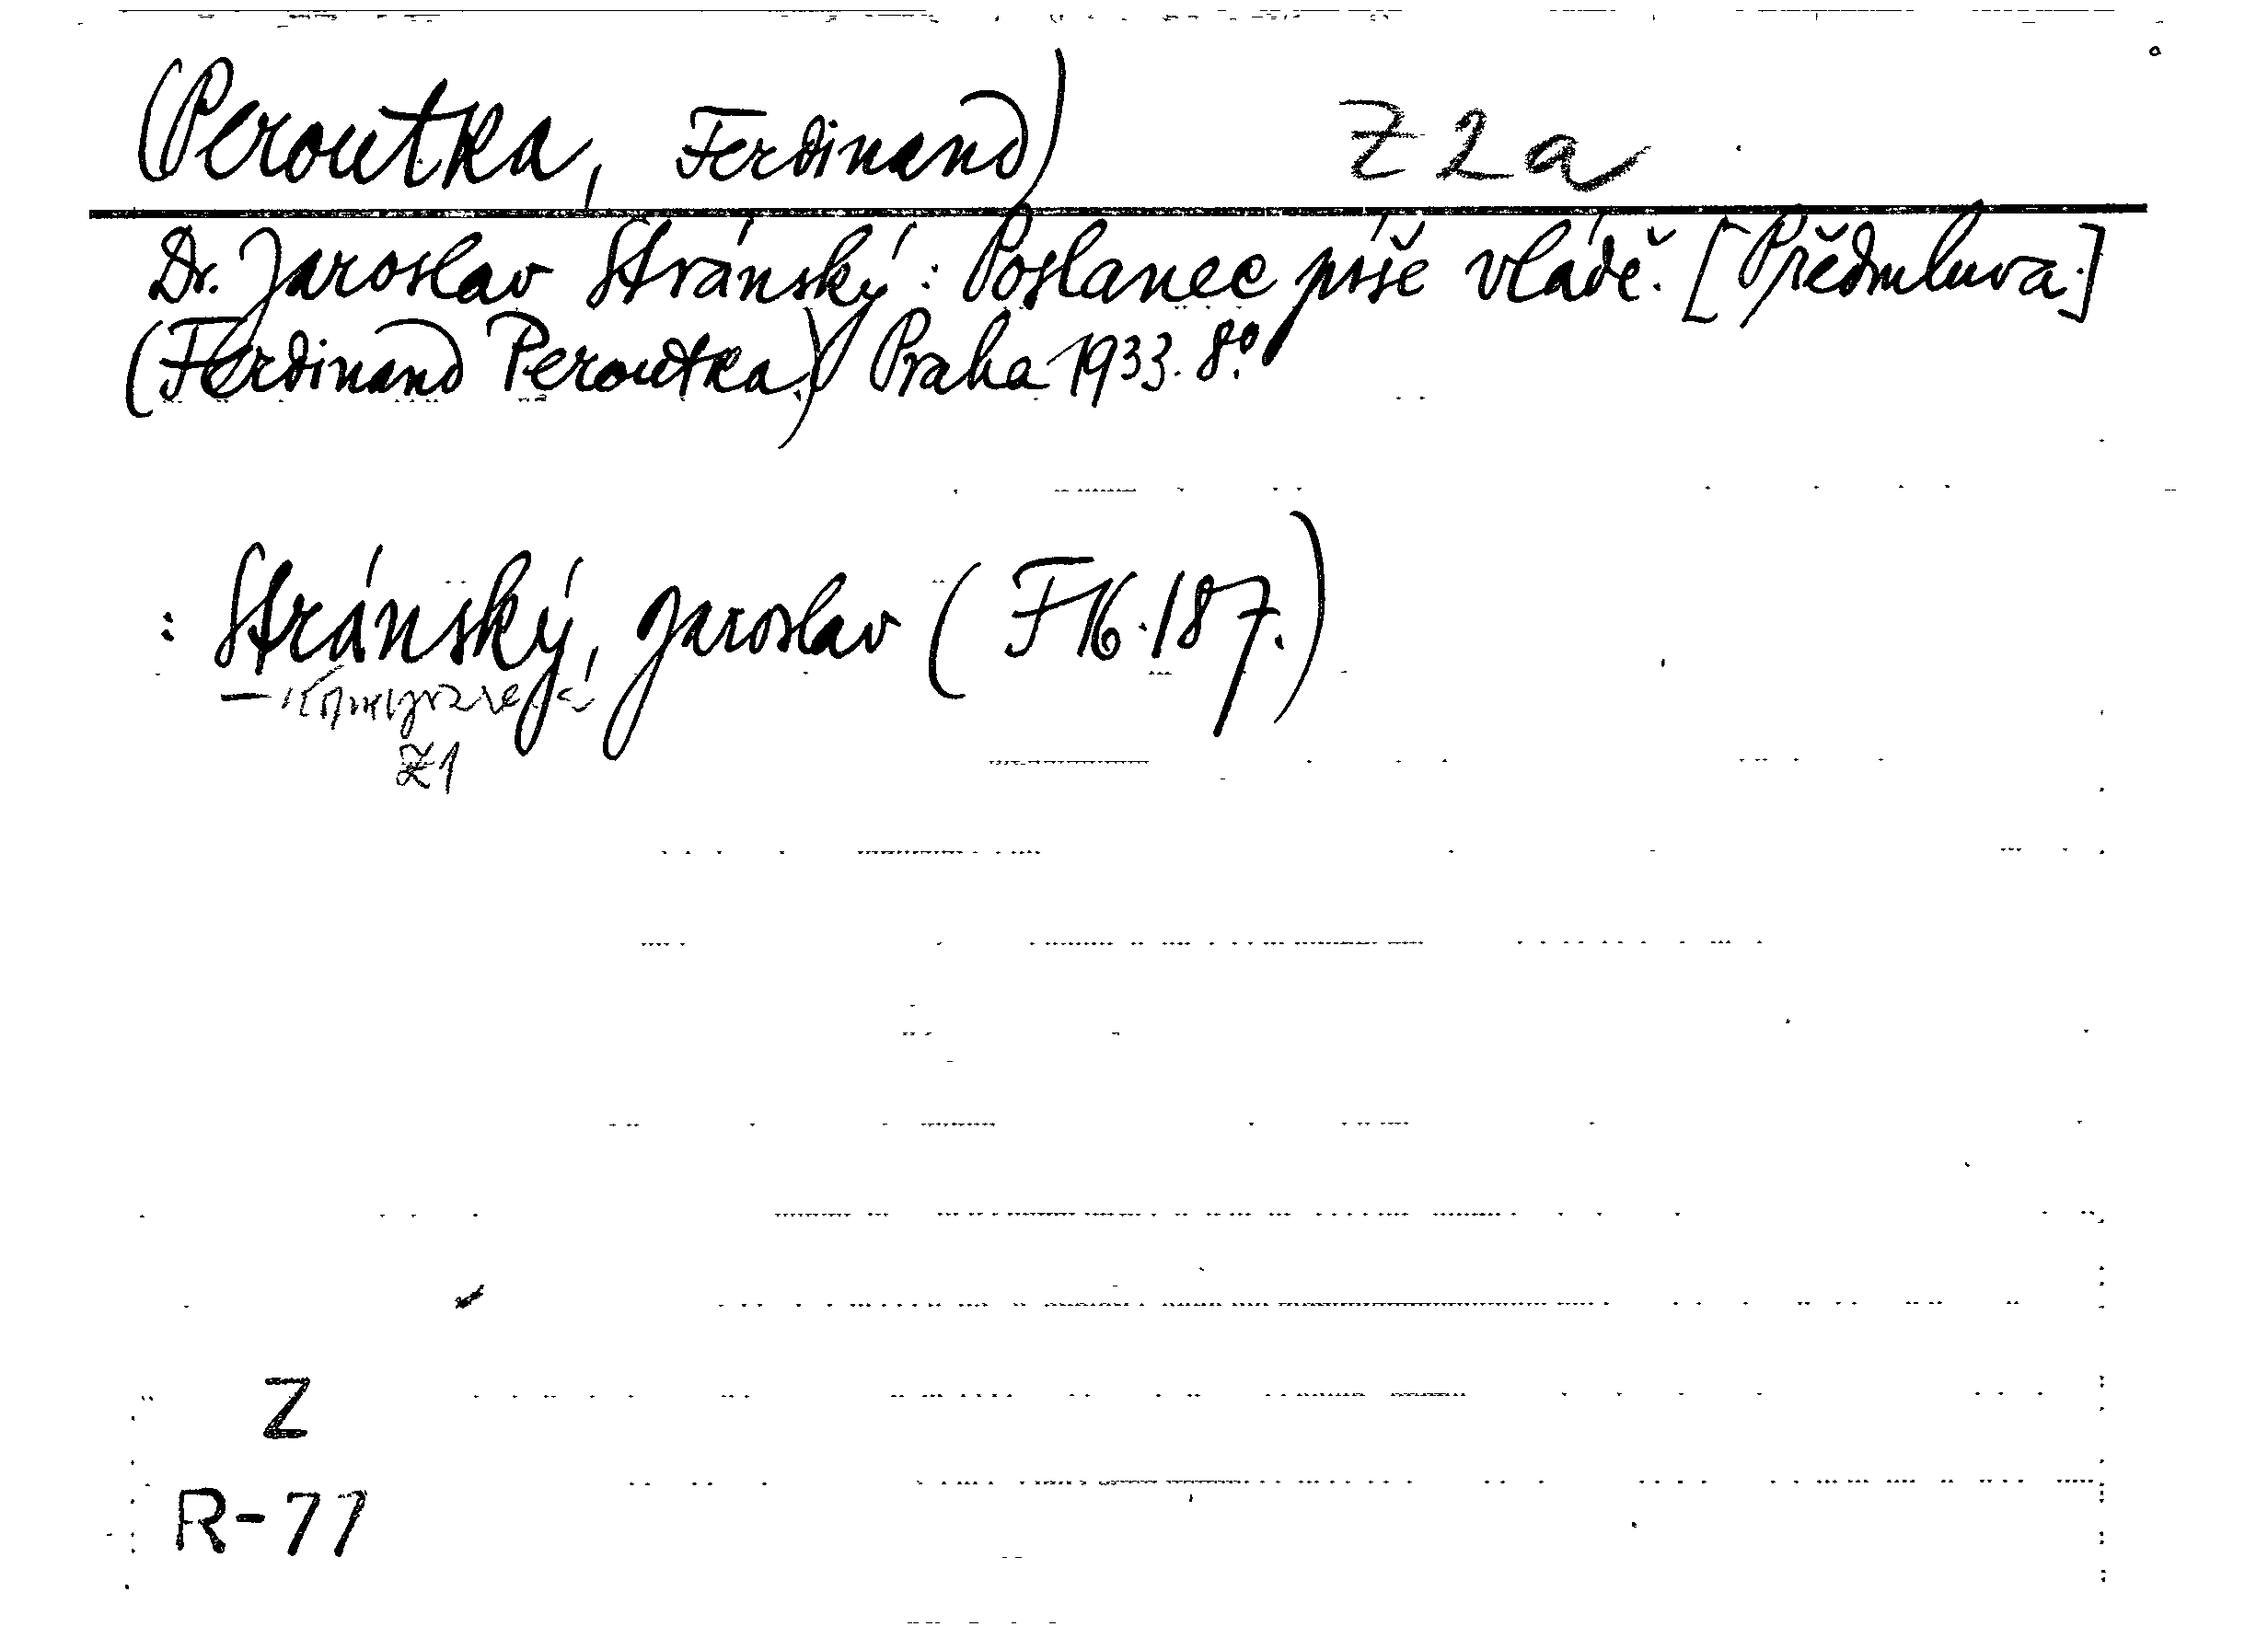 (Peroutka, Ferdinand) Z 2 a
Dr. Jaroslav Stránský: Poslanec píše vládě. [Předmluva.]
(Ferdinand Peroutka.) Praha 1933. 8°.
: Stránský, Jaroslav (F 16.187.)
—
Z1
Z
R-77